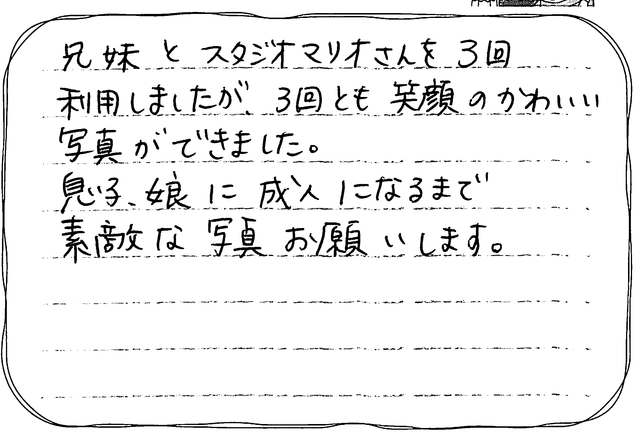 兄妹とスタジオマリオさんを3回
利用しましたが、3回とも笑顔のかわいい
写真ができました。
息子、娘に成人になるまで
素敵な写真お願いします。